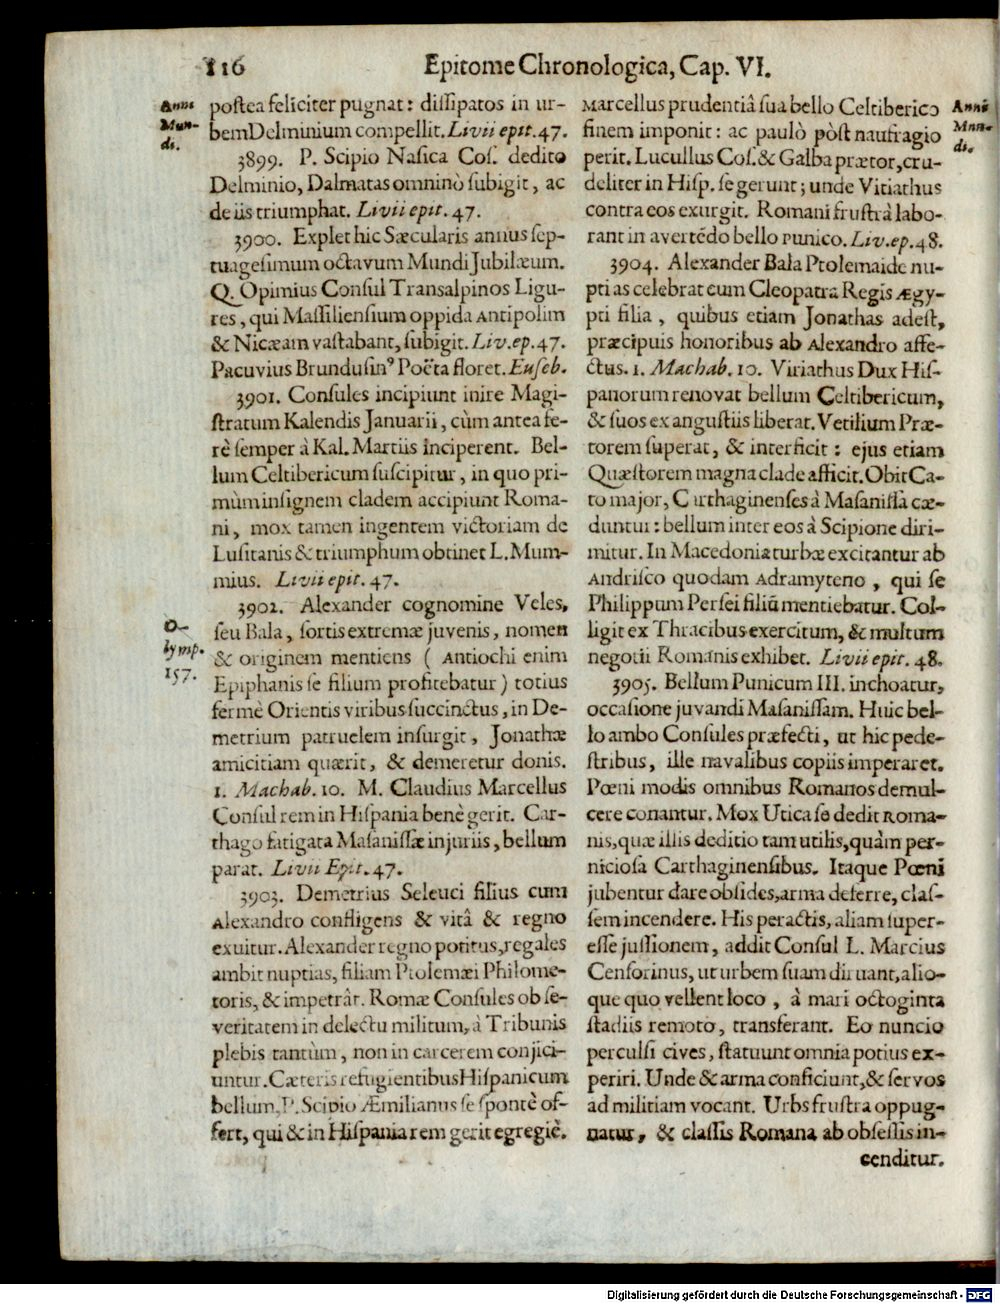 116 Epitome Chronologica, Cap. VI.
Anni
Mun-
di.
postea feliciter pugnat: dissipatos in ur-
bem Delminium compellit. Livii epit. 47.
3899. P. Scipio Nasica Cos. dedito
Delminio, Dalmatas omninò subigit, ac
de iis triumphat. Livii epit. 47.
3900. Explet hic Sæcularis annus sep-
tuagesimum octavum Mundi Jubilæum.
Q. Opimius Consul Transalpinos Ligu-
res, qui Massiliensium oppida Antipolim
& Nicæam vastabant, subigit. Liv. ep. 47.
Pacuvius Brundusinꝰ Poëta floret. Euseb.
3901. Consules incipiunt inire Magi-
stratum Kalendis Januarii, cùm antea fe-
rè semper à Kal. Martiis inciperent. Bel-
lum Celtibericum suscipitur, in quo pri-
mùm insignem cladem accipiunt Roma-
ni, mox tamen ingentem victoriam de
Lusitanis & triumphum obtinet L. Mum-
mius. Livii epit. 47.
O-
lymp.
157.
3902. Alexander cognomine Veles,
seu Bala, sortis extremæ juvenis, nomen
& originem mentiens ( Antiochi enim
Epiphanis se filium profitebatur) totius
fermè Orientis viribus succinctus, in De-
metrium patruelem insurgit, Jonathæ
amicitiam quærit, & demeretur donis.
1. Machab. 10. M. Claudius Marcellus
Consul rem in Hispania benè gerit. Car-
thago fatigata Masanissæ injuriis, bellum
parat. Livii Epit. 47.
3903. Demetrius Seleuci filius cum
Alexandro confligens & vitâ & regno
exuitur. Alexander regno potitus, regales
ambit nuptias, filiam Ptolemæi Philome-
toris, & impetrât. Romæ Consules ob se-
veritatem in delectu militum, à Tribunis
plebis tantùm, non in carcerem conjici-
untur. Cæteris refugientibus Hispanicum
bellum, P. Scipio Æmilianus se spontè of-
fert, qui & in Hispania rem gerit egregiè.
Anni
Mun-
di.
Marcellus prudentiâ sua bello Celtiberico
finem imponit: ac paulò pòst naufragio
perit. Lucullus Cos. & Galba prætor, cru-
deliter in Hisp. se gerunt; unde Viriathus
contra eos exurgit. Romani frustrà labo-
rant in avertēdo bello Punico. Liv. ep. 48.
3904. Alexander Bala Ptolemaide nu-
ptias celebrat cum Cleopatra Regis Ægy-
pti filia, quibus etiam Jonathas adest,
præcipuis honoribus ab Alexandro affe-
ctus. 1. Machab. 10. Viriathus Dux His-
panorum renovat bellum Celtibericum,
& suos ex angustiis liberat. Vetilium Præ-
torem superat, & interficit: ejus etiam
Quæstorem magna clade afficit. Obit Ca-
to major, Carthaginenses à Masanissa cæ-
duntur: bellum inter eos à Scipione diri-
mitur. In Macedonia turbæ excitantur ab
Andrisco quodam Adramyteno, qui se
Philippum Persei filiū mentiebatur. Col-
ligit ex Thracibus exercitum, & multum
negotii Romanis exhibet. Livii epit. 48.
3905. Bellum Punicum III. inchoatur,
occasione juvandi Masanissam. Huic bel-
lo ambo Consules præfecti, ut hic pede-
stribus, ille navalibus copiis imperaret.
Pœni modis omnibus Romanos demul-
cere conantur. Mox Utica se dedit Roma-
nis, quæ illis deditio tam utilis, quàm per-
niciosa Carthaginensibus. Itaque Pœni
jubentur dare obsides, arma deferre, clas-
sem incendere. His peractis, aliam super-
esse jussionem, addit Consul L. Marcius
Censorinus, ut urbem suam diruant, alio-
que quo vellent loco, à mari octoginta
stadiis remoto, transferant. Eo nuncio
perculsi cives, statuunt omnia potius ex-
periri. Unde & arma conficiunt, & servos
ad militiam vocant. Urbs frustra oppug-
natur, & classis Romana ab obsessis in-
cenditur.
Digitalisierung gefördert durch die Deutsche Forschungsgemeinschaft - DFG